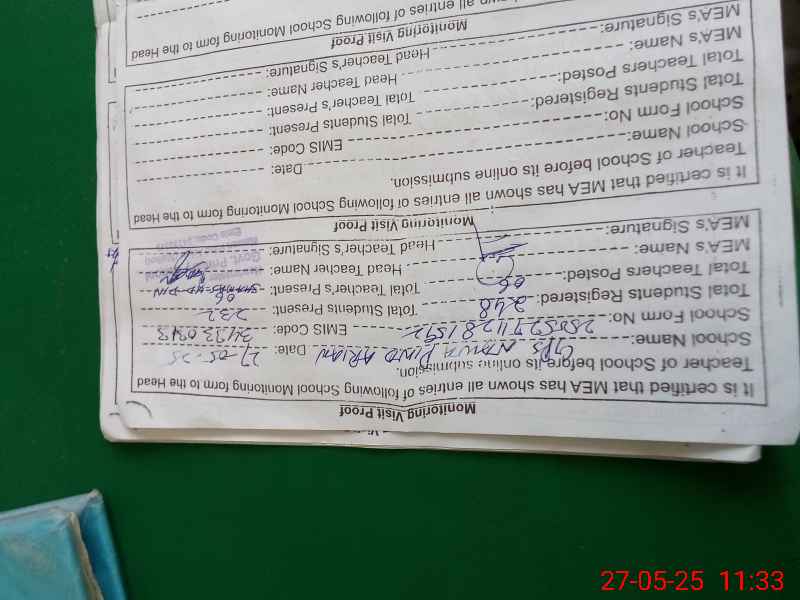 Monitoring Visit Proof
It is certified that MEA has shown all entries of following School Monitoring form to the Head
Teacher of School before its online submission.
School Name: GPS NAWA PIND ARIAN Date: 27-05-25
School Form No: EMIS Code:
Total Students Registered: 248 Total Students Present: 232
Total Teachers Posted: 06 Total Teacher's Present: 06
MEA's Name: Head Teacher Name:
MEA's Signature: Head Teacher's Signature:
Monitoring Visit Proof
It is certified that MEA has shown all entries of following School Monitoring form to the Head
Teacher of School before its online submission.
School Name: Date:
School Form No: EMIS Code:
Total Students Registered: Total Students Present:
Total Teachers Posted: Total Teacher's Present:
MEA's Name: Head Teacher Name:
MEA's Signature: Head Teacher's Signature:
Monitoring Visit Proof
all entries of following School Monitoring form to the Head
27-05-25 11:33